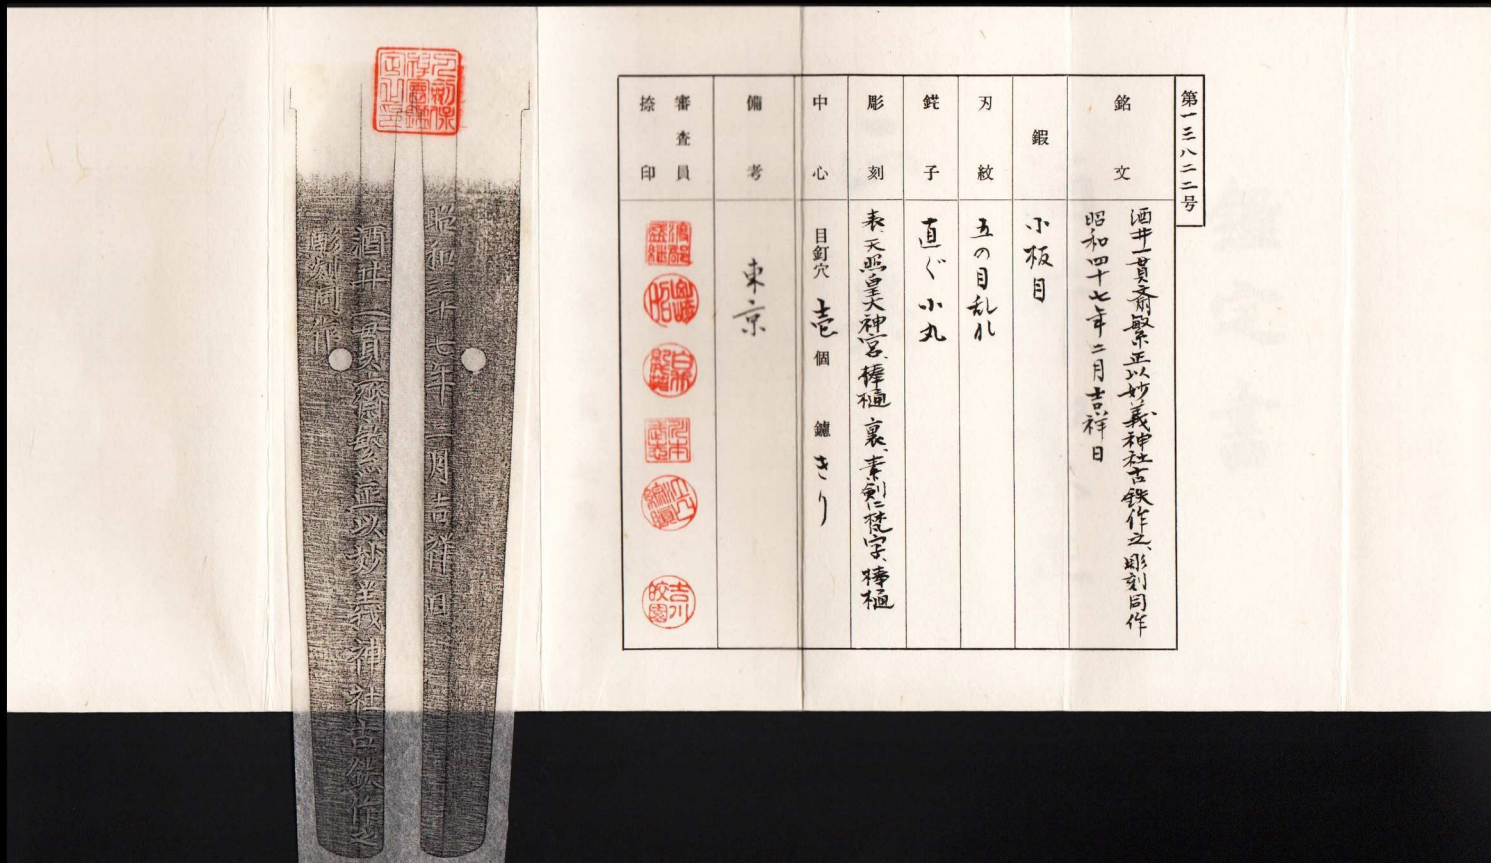 第一三八二二号
銘文
酒井一貫斎繁正以妙義神社古鉄作之、彫刻同作
昭和四十七年二月吉祥日
鍜
小板目
刃紋
五の目乱れ
鋩子
直ぐ小丸
彫刻
表、天照皇大神宮、棒樋 裏、素剣に梵字、棒樋
中心
目釘穴 壱個 鑢 きり
備考
東京
審査員
捺印
昭和四十七年二月吉祥日
酒井一貫斎繁正以妙義神社古鉄作之
彫刻同作